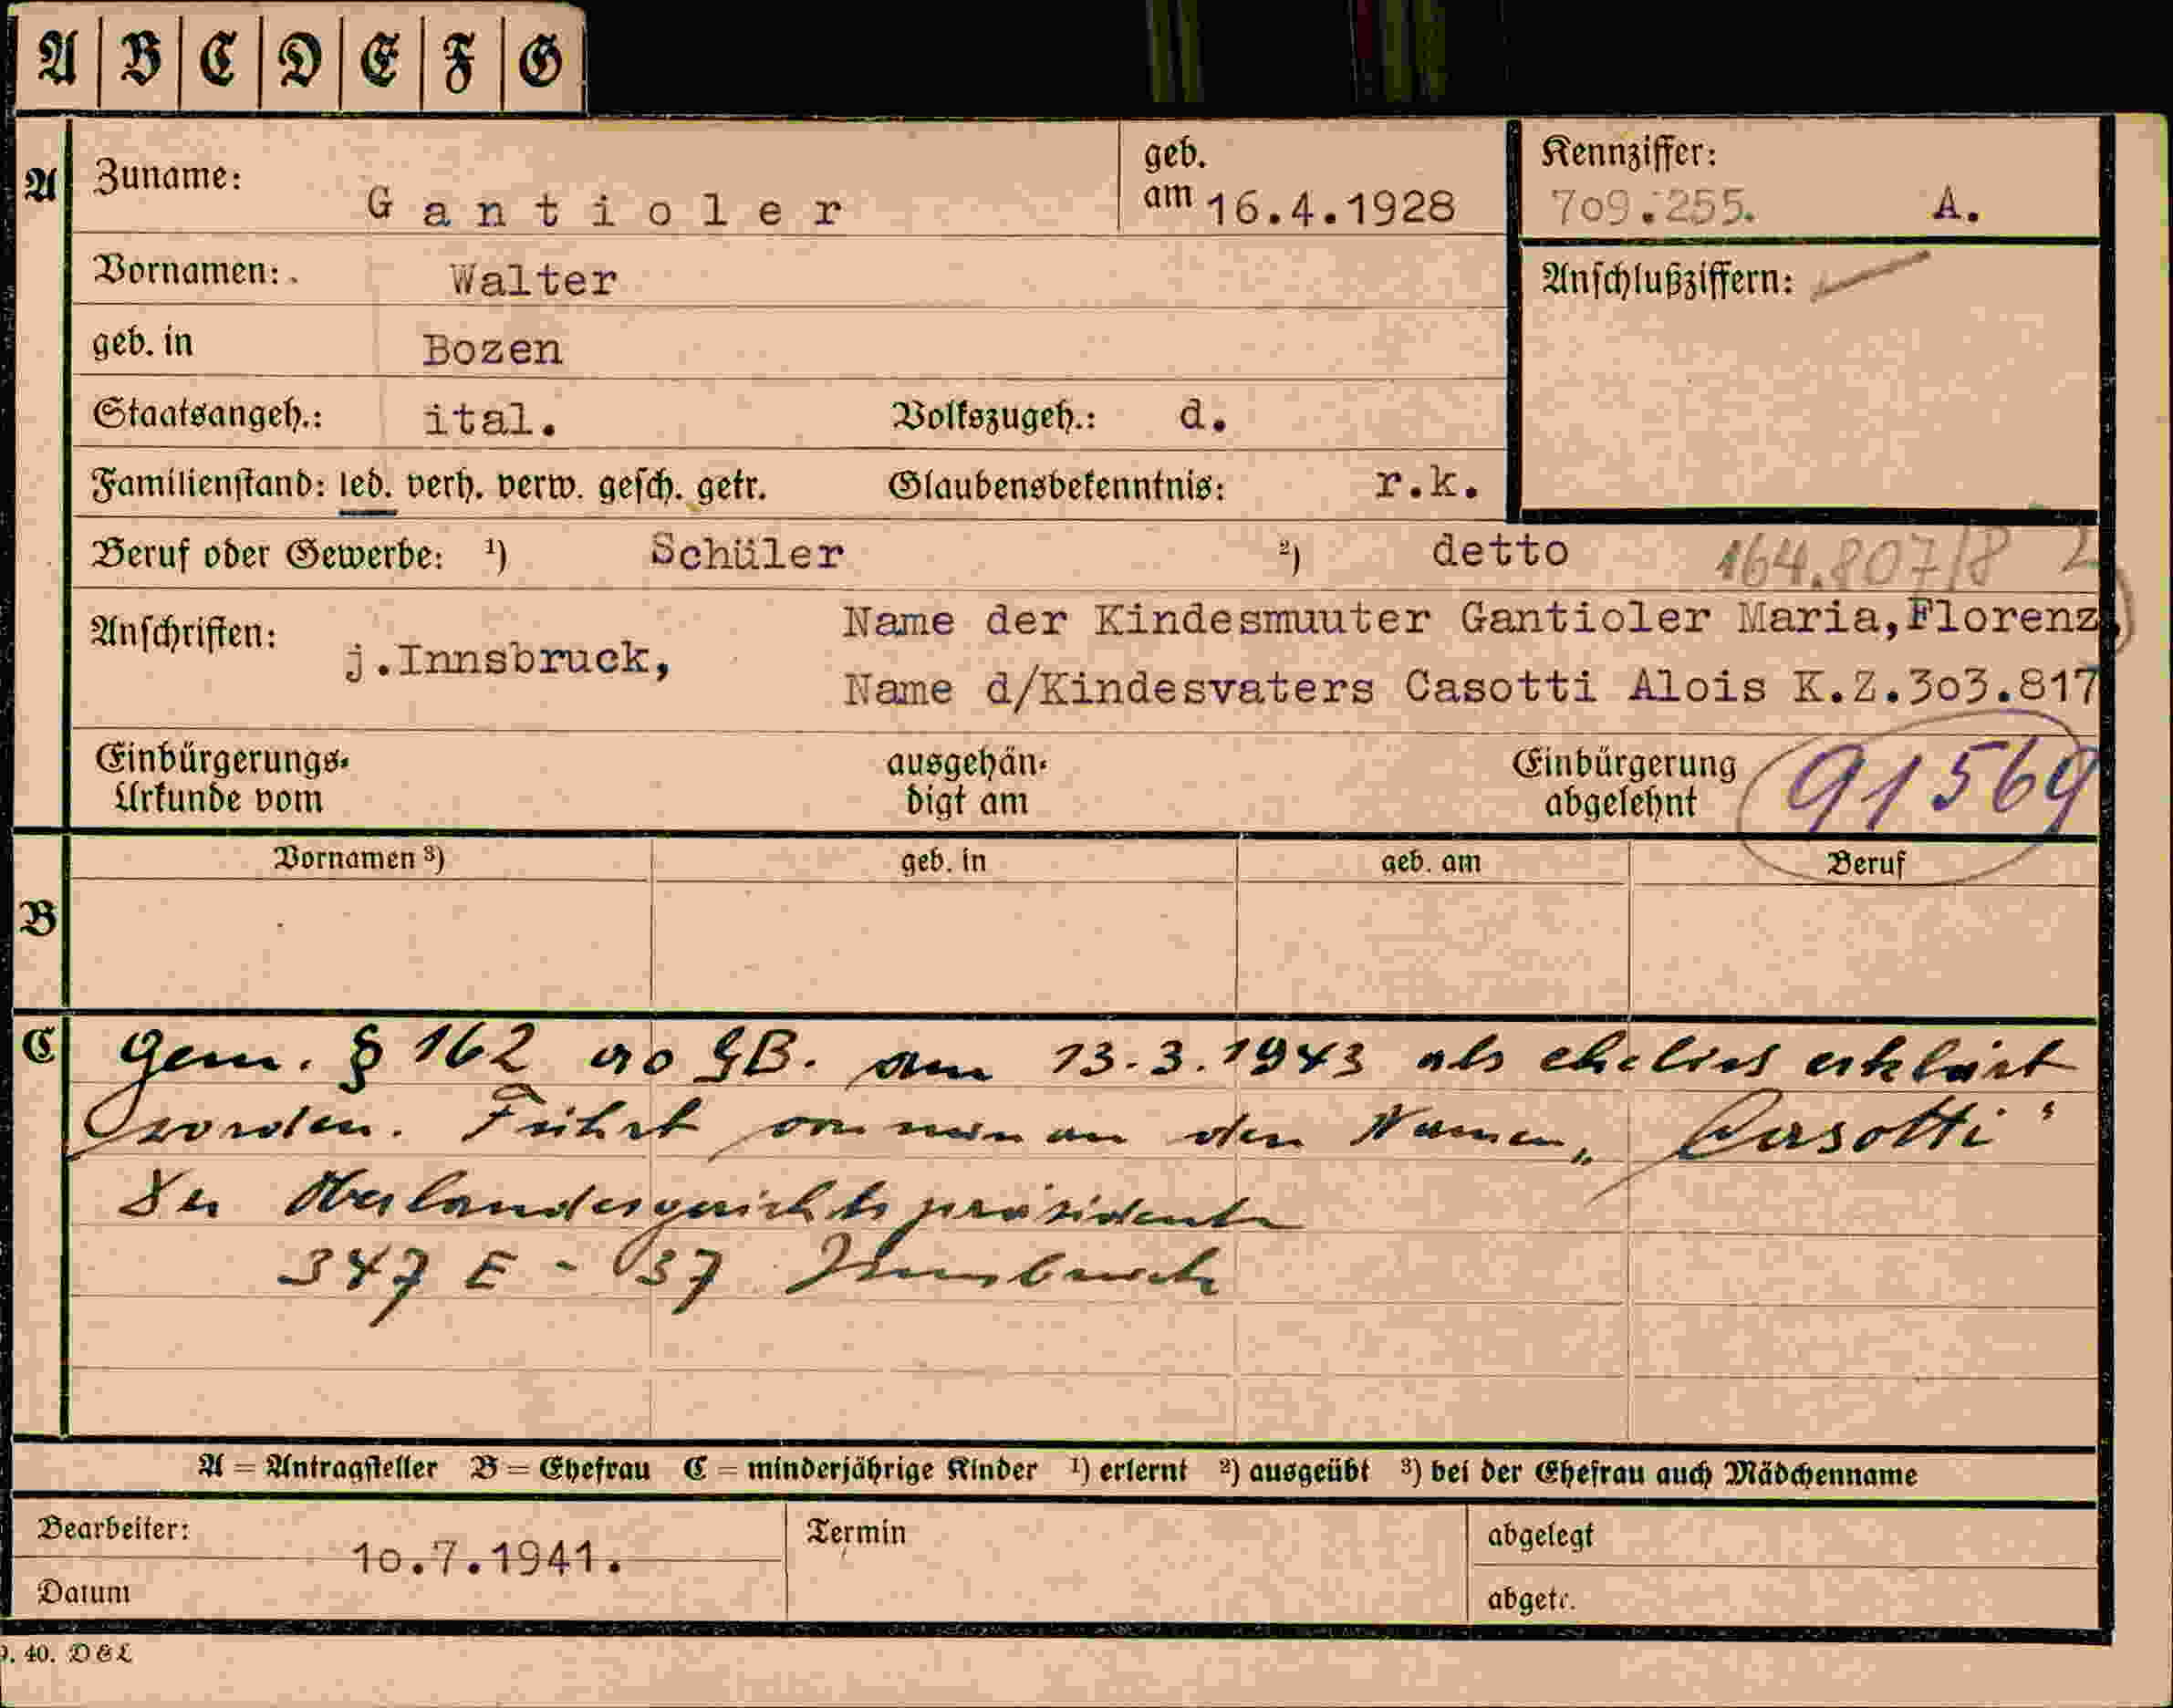 A B C D E F G
A Zuname: Gantioler geb. am 16.4.1928 Kennziffer: 709.255. A.
Vornamen: Walter Anschlußziffern:
geb. in Bozen
Staatsangeh.: ital. Volkszugeh.: d.
Familienstand: led. verh. verw. gesch. getr. Glaubensbekenntnis: r.k.
Beruf oder Gewerbe: ¹) Schüler ²) detto 164.807/8 2
Anschriften: j.Innsbruck, Name der Kindesmuuter Gantioler Maria,Florenz,
Name d/Kindesvaters Casotti Alois K.Z.303.817
Einbürgerungs- ausgehän- Einbürgerung 91569
Urkunde vom digt am abgelehnt
Vornamen ³) geb. in geb. am Beruf
B
C gem. § 162 GB. am 13.3.1943 als ehelich erklärt
worden. Führt von nun an den Namen „Casotti"
Der Oberlandesgerichtspräsident
347 E - 37 Innsbruck
A = Antragsteller B = Ehefrau C = minderjährige Kinder ¹) erlernt ²) ausgeübt ³) bei der Ehefrau auch Mädchenname
Bearbeiter: Termin abgelegt
10.7.1941.
Datum abgetr.
9. 40. D&L